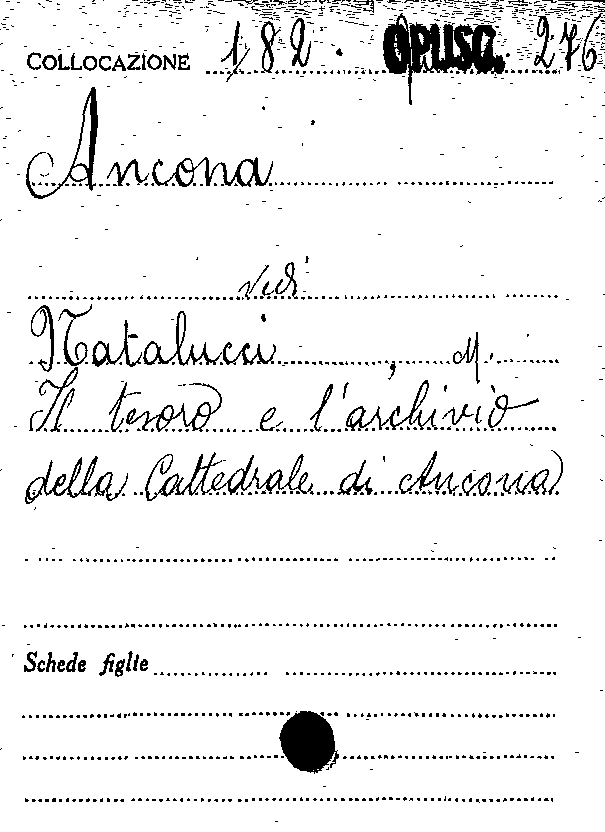 COLLOCAZIONE 182. OPUSC. 276
Ancona
vedi
Natalucci, M.
Il tesoro e l'archivio
della Cattedrale di Ancona
Schede figlie